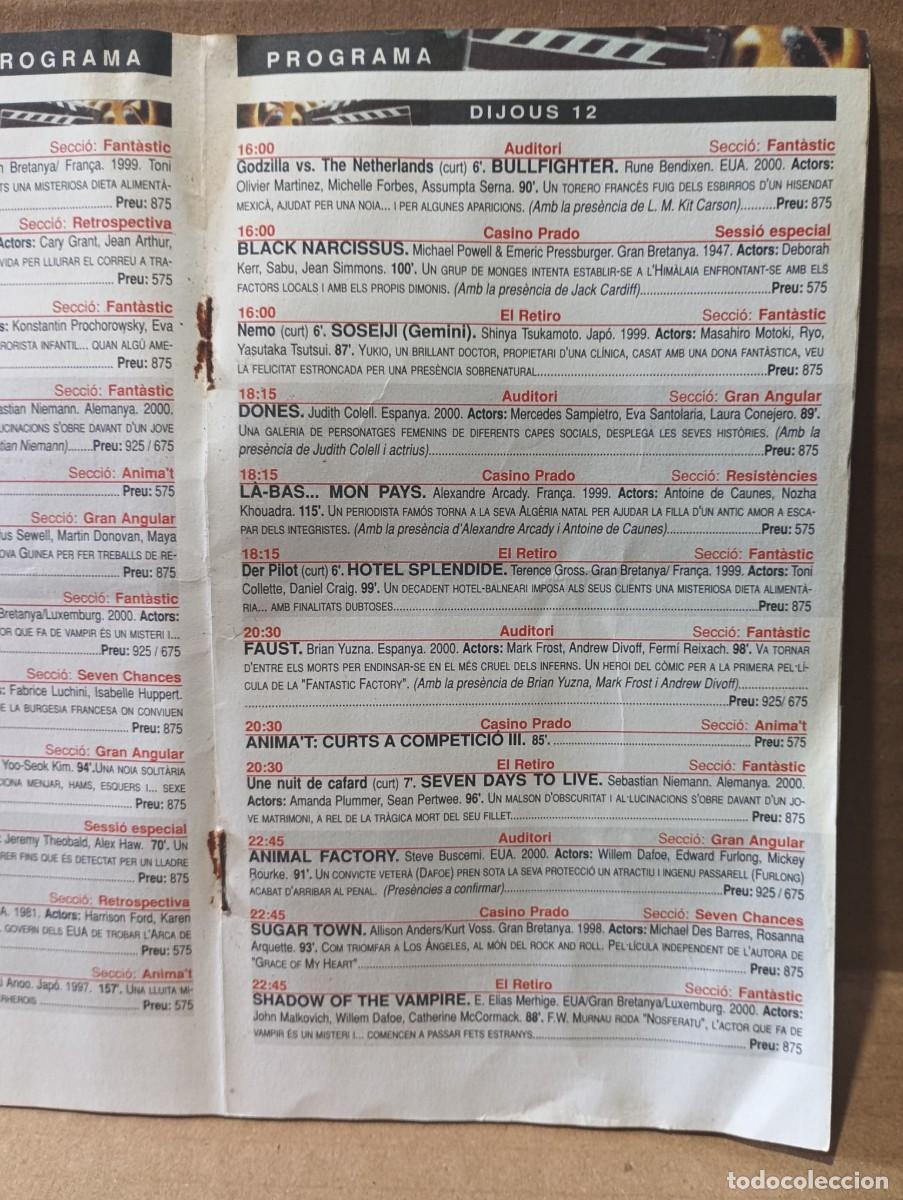 ROGRAMA
Secció: Fantàstic
Bretanya/ França. 1999. Toni
TS UNA MISTERIOSA DIETA ALIMENTÀ-
Preu: 875
Secció: Retrospectiva
Actors: Cary Grant, Jean Arthur,
VIDA PER LLIURAR EL CORREU A TRA-
Preu: 575
Secció: Fantàstic
s: Konstantin Prochorowsky, Eva
RORISTA INFANTIL... QUAN ALGÚ AME-
Preu: 875
Secció: Fantàstic
astian Niemann. Alemanya. 2000.
UCINACIONS S'OBRE DAVANT D'UN JOVE
tian Niemann).....Preu: 925 / 675
Secció: Anima't
Preu: 575
Secció: Gran Angular
us Sewell, Martin Donovan, Maya
OVA GUINEA PER FER TREBALLS DE RE-
Preu: 875
Secció: Fantàstic
Bretanya/Luxemburg. 2000. Actors:
OR QUE FA DE VAMPIR ÉS UN MISTERI I...
Preu: 925 / 675
Secció: Seven Chances
: Fabrice Luchini, Isabelle Huppert.
E LA BURGESIA FRANCESA ON CONVIUEN
Preu: 875
Secció: Gran Angular
Yoo-Seok Kim. 94'.UNA NOIA SOLITÀRIA
CIONA MENJAR, HAMS, ESQUERS I... SEXE
Preu: 875
Sessió especial
: Jeremy Theobald, Alex Haw. 70'. UN
RER FINS QUE ÉS DETECTAT PER UN LLADRE
Preu: 875
Secció: Retrospectiva
A. 1981. Actors: Harrison Ford, Karen
GOVERN DELS EUA DE TROBAR L'ARCA DE
Preu: 575
Secció: Anima't
Japó. 1997. 157'. UNA LLUITA MI-
Preu: 575
PROGRAMA
DIJOUS 12
16:00 Auditori Secció: Fantàstic
Godzilla vs. The Netherlands (curt) 6'. BULLFIGHTER. Rune Bendixen. EUA. 2000. Actors:
Olivier Martinez, Michelle Forbes, Assumpta Serna. 90'. UN TORERO FRANCÉS FUIG DELS ESBIRROS D'UN HISENDAT
MEXICÀ, AJUDAT PER UNA NOIA... I PER ALGUNES APARICIONS. (Amb la presència de L. M. Kit Carson)..........Preu: 875
16:00 Casino Prado Sessió especial
BLACK NARCISSUS. Michael Powell & Emeric Pressburger. Gran Bretanya. 1947. Actors: Deborah
Kerr, Sabu, Jean Simmons. 100'. UN GRUP DE MONGES INTENTA ESTABLIR-SE A L'HIMÀLAIA ENFRONTANT-SE AMB ELS
FACTORS LOCALS I AMB ELS PROPIS DIMONIS. (Amb la presència de Jack Cardiff)....................Preu: 575
16:00 El Retiro Secció: Fantàstic
Nemo (curt) 6'. SOSEIJI (Gemini). Shinya Tsukamoto. Japó. 1999. Actors: Masahiro Motoki, Ryo,
Yasutaka Tsutsui. 87'. YUKIO, UN BRILLANT DOCTOR, PROPIETARI D'UNA CLÍNICA, CASAT AMB UNA DONA FANTÀSTICA, VEU
LA FELICITAT ESTRONCADA PER UNA PRESÈNCIA SOBRENATURAL....................Preu: 875
18:15 Auditori Secció: Gran Angular
DONES. Judith Colell. Espanya. 2000. Actors: Mercedes Sampietro, Eva Santolaria, Laura Conejero. 89'.
UNA GALERIA DE PERSONATGES FEMENINS DE DIFERENTS CAPES SOCIALS, DESPLEGA LES SEVES HISTÒRIES. (Amb la
presència de Judith Colell i actrius)....................Preu: 875
18:15 Casino Prado Secció: Resistències
LÀ-BAS... MON PAYS. Alexandre Arcady. França. 1999. Actors: Antoine de Caunes, Nozha
Khouadra. 115'. UN PERIODISTA FAMÓS TORNA A LA SEVA ALGÈRIA NATAL PER AJUDAR LA FILLA D'UN ANTIC AMOR A ESCA-
PAR DELS INTEGRISTES. (Amb la presència d'Alexandre Arcady i Antoine de Caunes)....................Preu: 575
18:15 El Retiro Secció: Fantàstic
Der Pilot (curt) 6'. HOTEL SPLENDIDE. Terence Gross. Gran Bretanya/ França. 1999. Actors: Toni
Collette, Daniel Craig. 99'. UN DECADENT HOTEL-BALNEARI IMPOSA ALS SEUS CLIENTS UNA MISTERIOSA DIETA ALIMENTÀ-
RIA... AMB FINALITATS DUBTOSES....................Preu: 875
20:30 Auditori Secció: Fantàstic
FAUST. Brian Yuzna. Espanya. 2000. Actors: Mark Frost, Andrew Divoff, Fermí Reixach. 98'. VA TORNAR
D'ENTRE ELS MORTS PER ENDINSAR-SE EN EL MÉS CRUEL DELS INFERNS. UN HEROI DEL CÒMIC PER A LA PRIMERA PEL·LÍ-
CULA DE LA "FANTASTIC FACTORY". (Amb la presència de Brian Yuzna, Mark Frost i Andrew Divoff)....................
Preu: 925/ 675
20:30 Casino Prado Secció: Anima't
ANIMA'T: CURTS A COMPETICIÓ III. 85'.....................Preu: 575
20:30 El Retiro Secció: Fantàstic
Une nuit de cafard (curt) 7'. SEVEN DAYS TO LIVE. Sebastian Niemann. Alemanya. 2000.
Actors: Amanda Plummer, Sean Pertwee. 96'. UN MALSON D'OBSCURITAT I AL·LUCINACIONS S'OBRE DAVANT D'UN JO-
VE MATRIMONI, A REL DE LA TRÀGICA MORT DEL SEU FILLET....................Preu: 875
22:45 Auditori Secció: Gran Angular
ANIMAL FACTORY. Steve Buscemi. EUA. 2000. Actors: Willem Dafoe, Edward Furlong, Mickey
Rourke. 91'. UN CONVICTE VETERÀ (DAFOE) PREN SOTA LA SEVA PROTECCIÓ UN ATRACTIU I INGENU PASSARELL (FURLONG)
ACABAT D'ARRIBAR AL PENAL. (Presències a confirmar)....................Preu: 925 / 675
22:45 Casino Prado Secció: Seven Chances
SUGAR TOWN. Allison Anders/Kurt Voss. Gran Bretanya. 1998. Actors: Michael Des Barres, Rosanna
Arquette. 93'. COM TRIOMFAR A LOS ÁNGELES, AL MÓN DEL ROCK AND ROLL. PEL·LÍCULA INDEPENDENT DE L'AUTORA DE
"GRACE OF MY HEART"....................Preu: 875
22:45 El Retiro Secció: Fantàstic
SHADOW OF THE VAMPIRE. E. Elias Merhige. EUA/Gran Bretanya/Luxemburg. 2000. Actors:
John Malkovich, Willem Dafoe, Catherine McCormack. 88'. F.W. MURNAU RODA "NOSFERATU", L'ACTOR QUE FA DE
VAMPIR ÉS UN MISTERI I... COMENCEN A PASSAR FETS ESTRANYS....................Preu: 875
todocoleccion